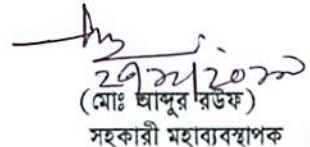 (মোঃ আব্দুর রউফ)
সহকারী মহাব্যবস্থাপক